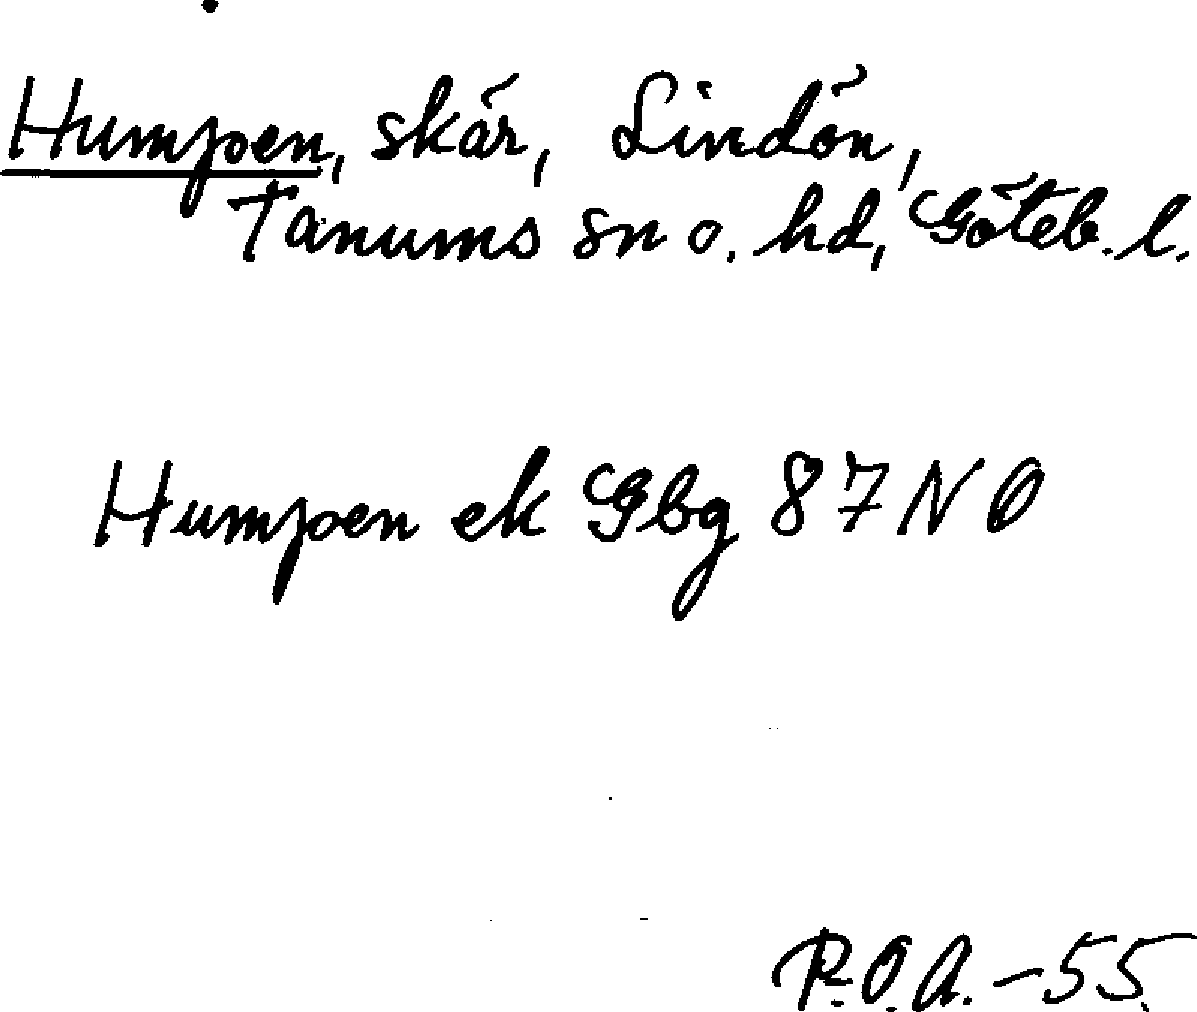 Humpen, skär, Lindön,
Tanums sn o. hd, Göteb. l.
Humpen ek Gbg 87 NO
R.O.A. -55